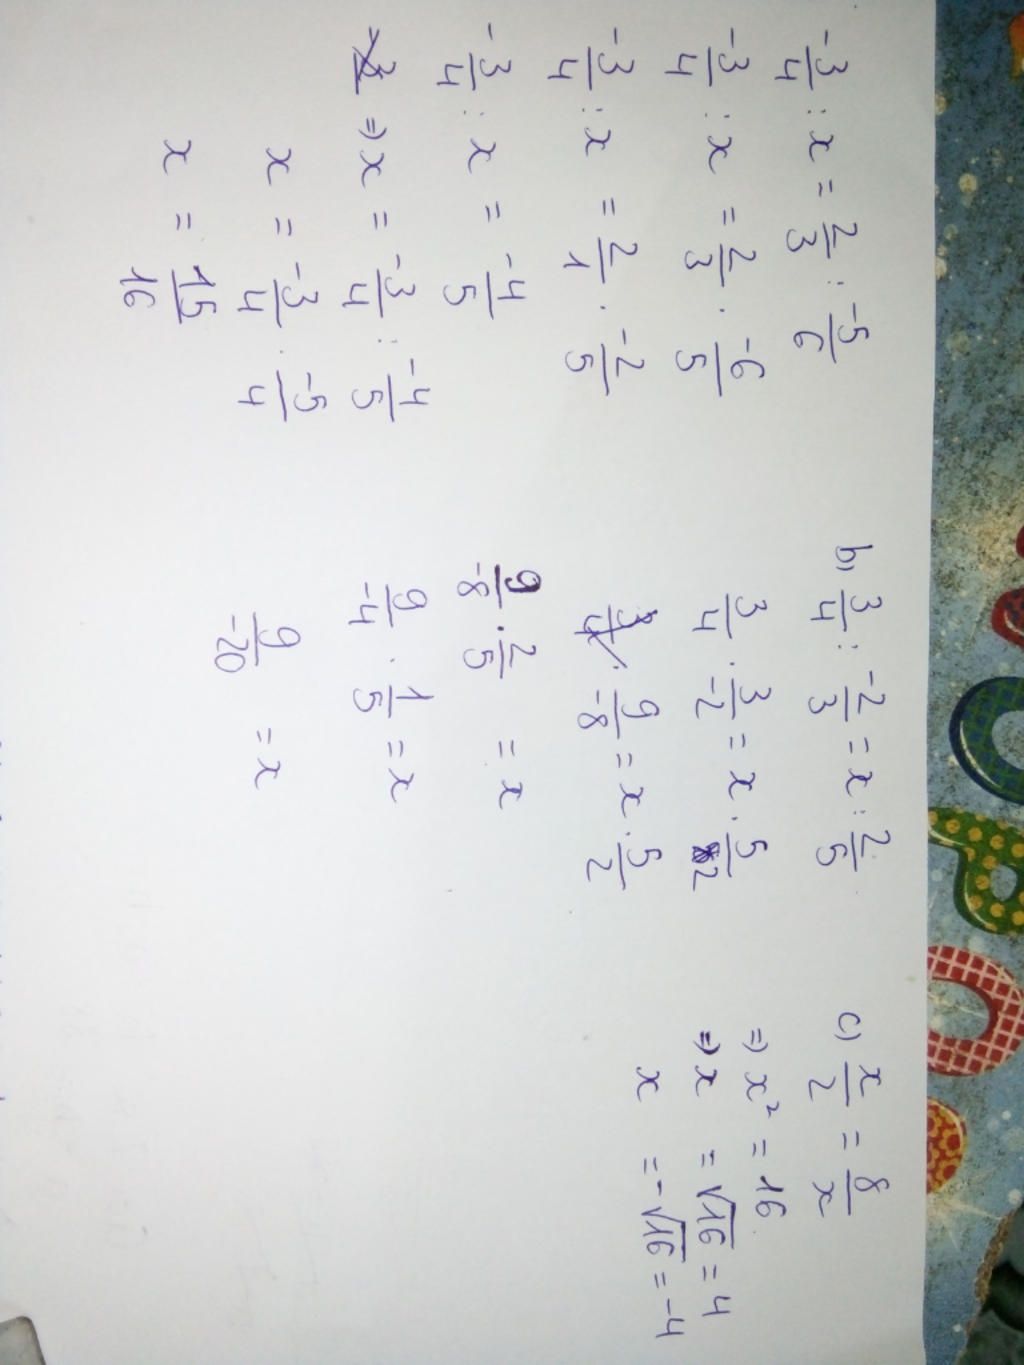 -3/4 : x = 2/3 : -5/6
-3/4 : x = 2/3 . -6/5
-3/4 : x = 2/1 . -2/5
-3/4 : x = -4/5
=> x = -3/4 : -4/5
x = -3/4 . -5/4
x = 15/16
b) 3/4 : -2/3 = x : 2/5
3/4 . 3/-2 = x . 5/2
9/-8 = x . 5/2
9/-8 . 2/5 = x
9/-4 . 1/5 = x
9/-20 = x
c) x/2 = 8/x
=> x² = 16
=> x = √16 = 4
x = -√16 = -4